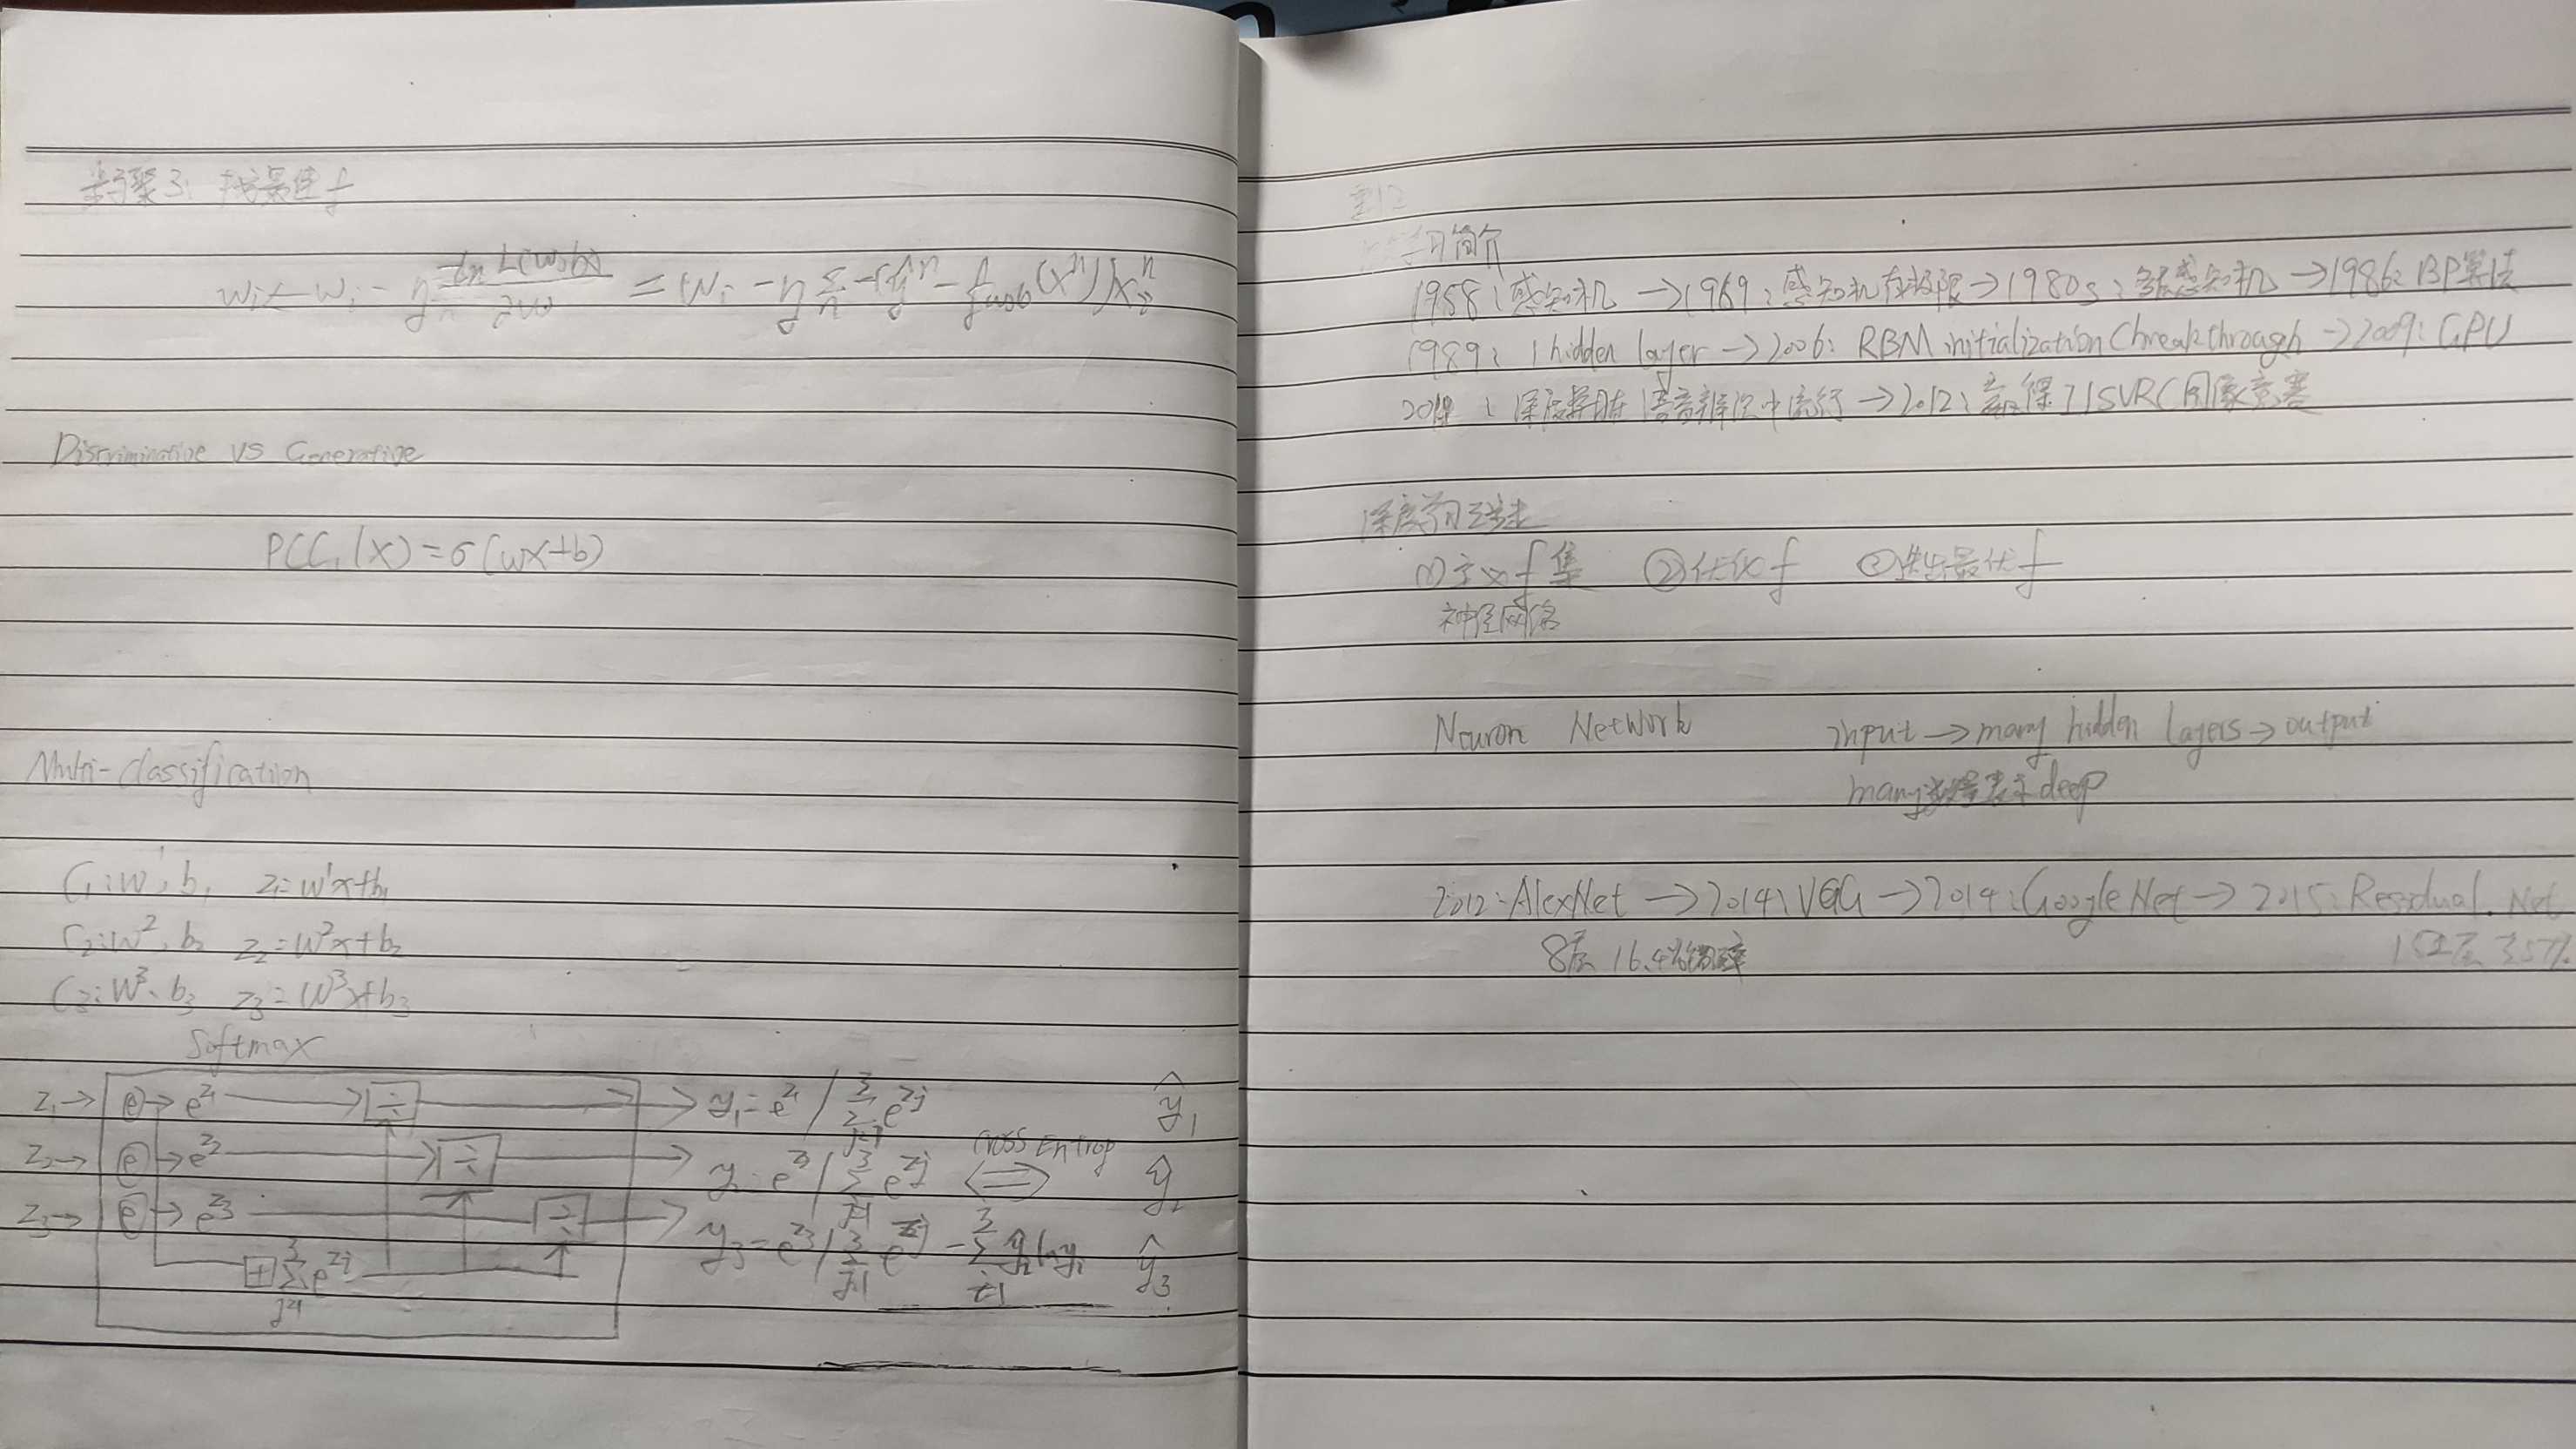 步骤3: 找最佳f
wi ← wi - η -ln L(w,b) / ∂w = wi - η Σn -(ŷⁿ - fw,b(xⁿ))xiⁿ
Discriminative VS Generative
P(C₁|x) = σ(wx+b)
Multi-classification
C₁: w¹, b₁ z₁ = w¹x+b₁
C₂: w², b₂ z₂ = w²x+b₂
C₃: w³, b₃ z₃ = w³x+b₃
Softmax
z₁ → e → e^z₁ → ÷ → y₁ = e^z₁ / Σ(j=1..3) e^zj ŷ₁
Cross Entrop
z₂ → e → e^z₂ → ÷ → y₂ = e^z₂ / Σ(j=1..3) e^zj ⇔ ŷ₂
z₃ → e → e^z₃ → ÷ → y₃ = e^z₃ / Σ(j=1..3) e^zj -Σ(i=1..3) ŷi ln yi ŷ₃
+ Σ(j=1..3) e^zj
学习简介
1958: 感知机 → 1969: 感知机有极限 → 1980s: 多层感知机 → 1986: BP算法
1989: 1 hidden layer → 2006: RBM initialization (breakthrough → 2009: GPU
: 语音辨识中流行 → 2012: 赢得ILSVRC图像竞赛
深度学习三步走
(1) 定义f集 ② 优化f ③ 选出最优f
神经网络
Neuron Network input → many hidden layers → output
many 表示deep
2012: AlexNet → 2014: VGG → 2014: GoogleNet → 2015: Residual Net
8层 16.4%错误率 152层 3.57%